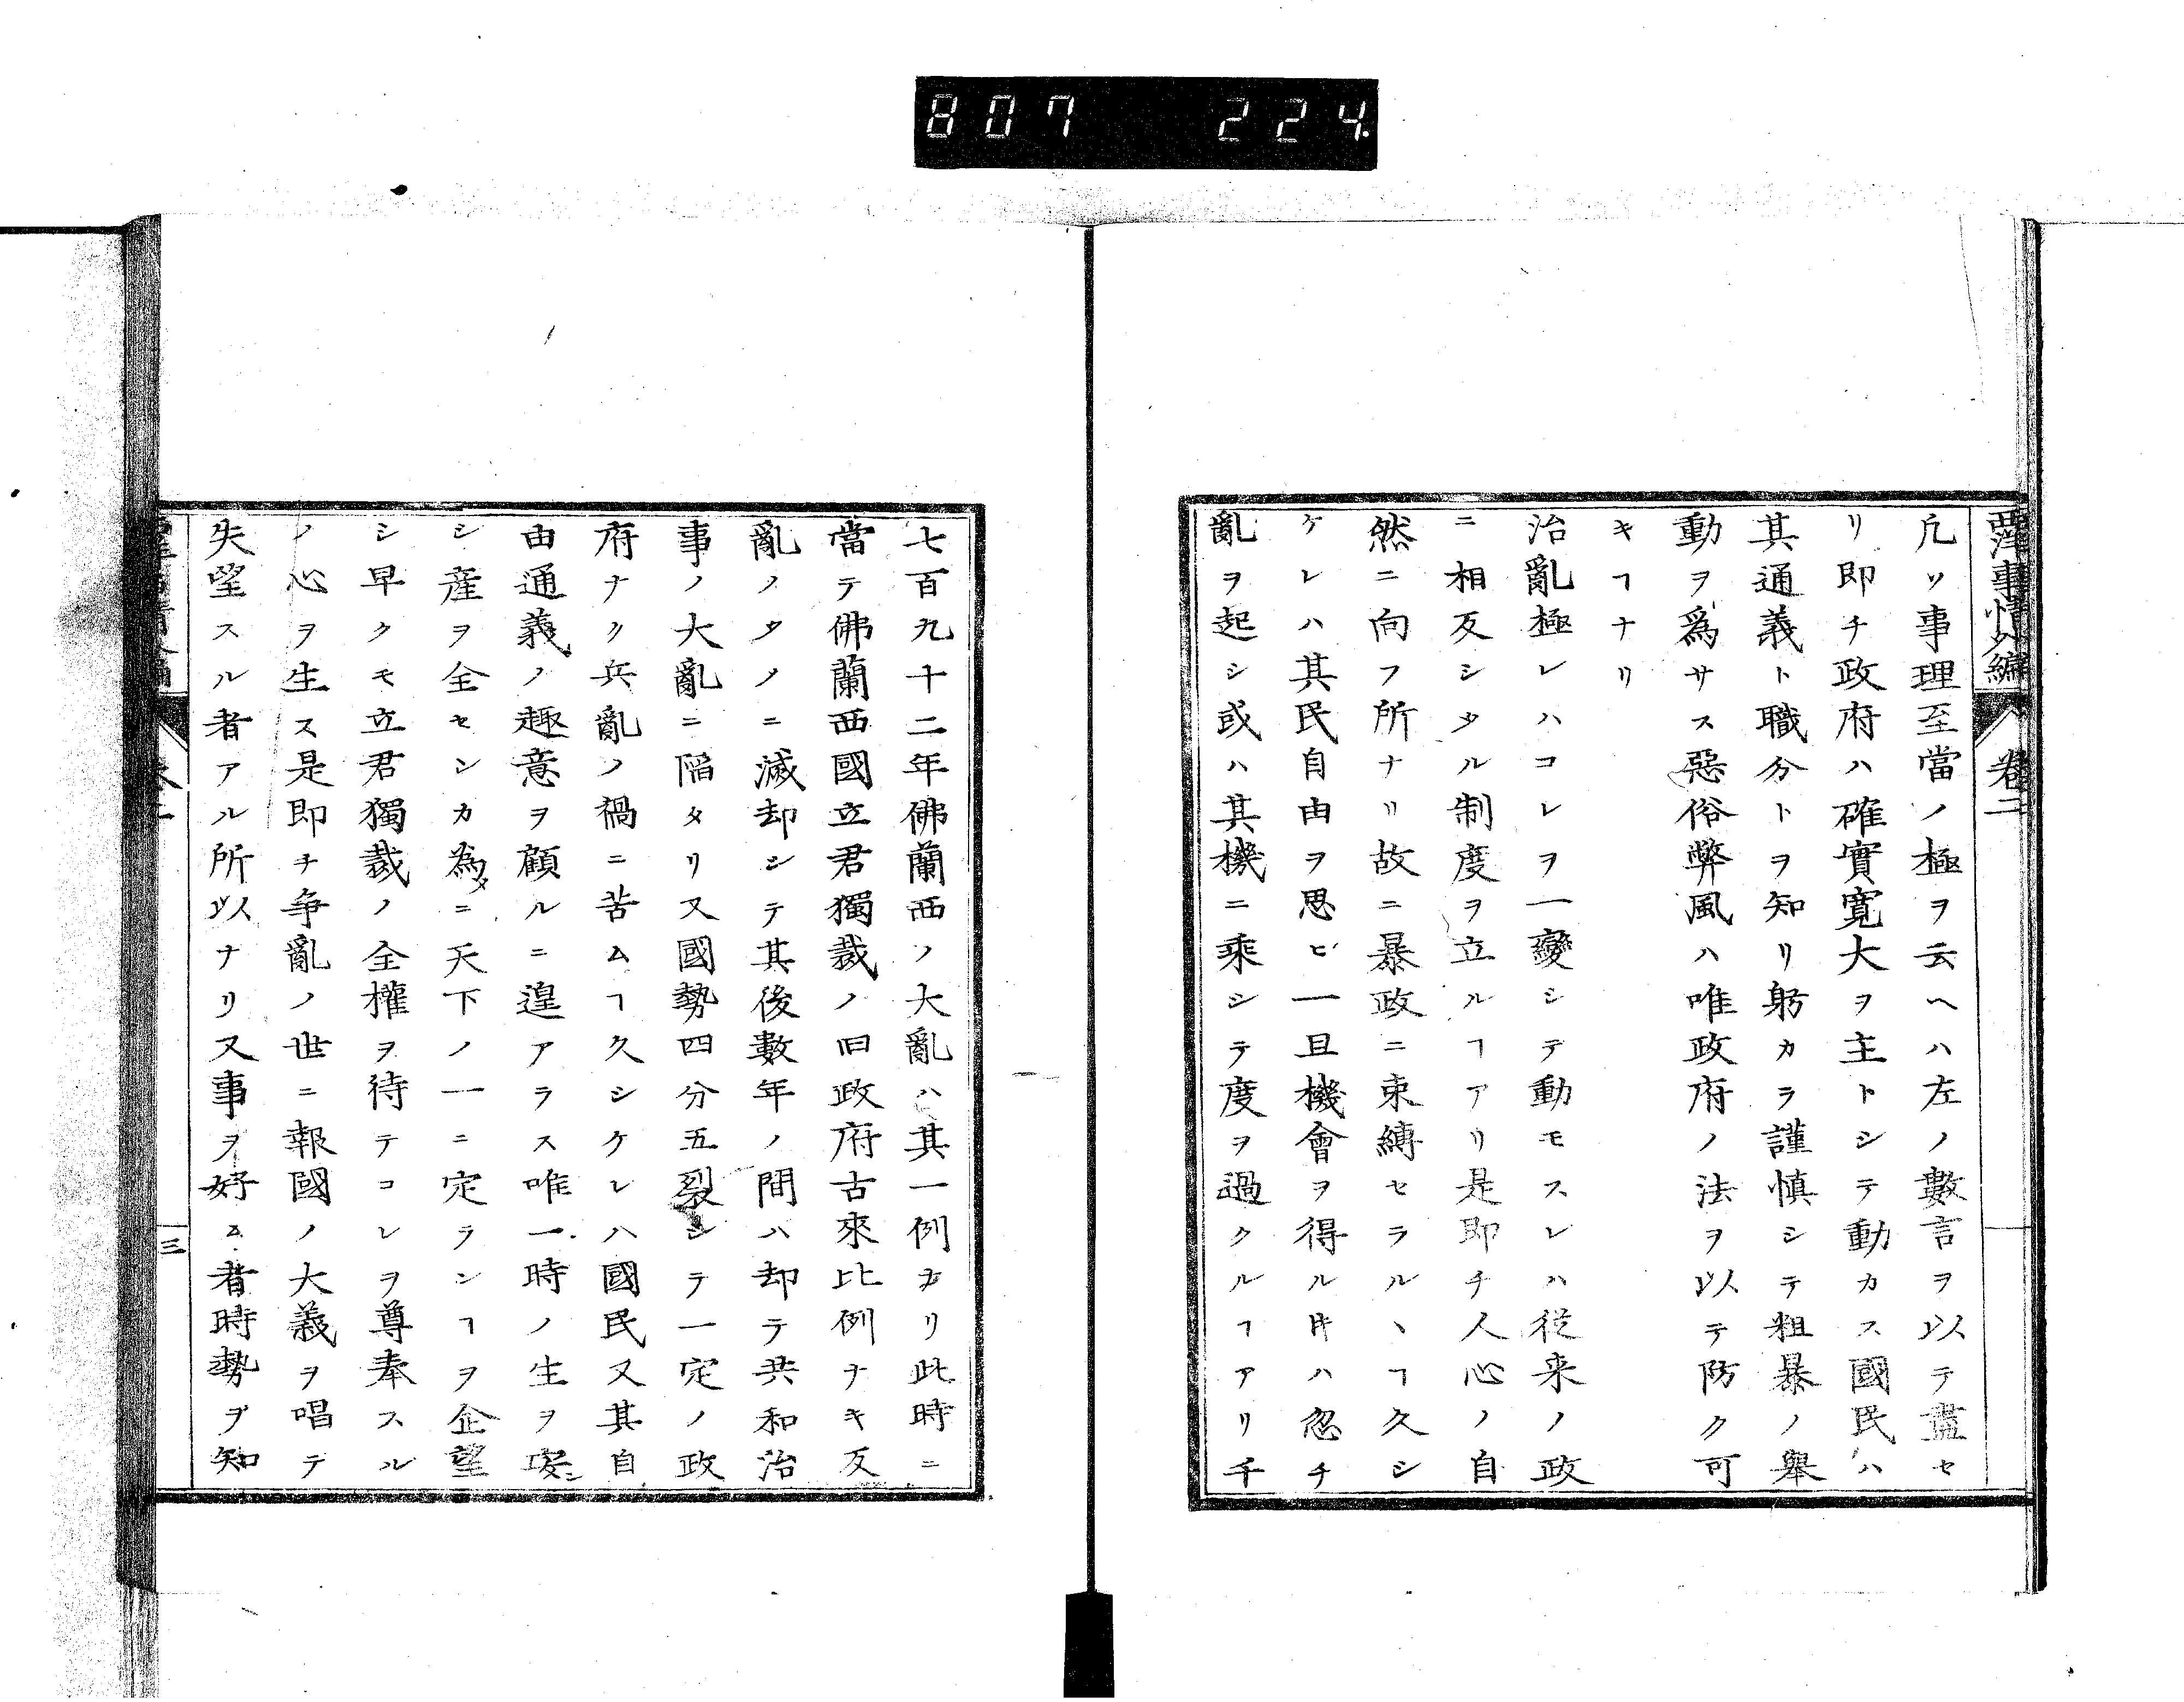 807 224
西洋事情外編 卷二
凡ソ事理至當ノ極ヲ云ヘハ左ノ數言ヲ以テ盡セ
リ即チ政府ハ確實寛大ヲ主トシテ動カス國民ハ
其通義ト職分トヲ知リ躬カラ謹慎シテ粗暴ノ舉
動ヲ爲サス惡俗弊風ハ唯政府ノ法ヲ以テ防ク可
キヿナリ
治亂極レハコレヲ一變シテ動モスレハ從来ノ政
ニ相反シタル制度ヲ立ルヿアリ是即チ人心ノ自
然ニ向フ所ナリ故ニ暴政ニ束縛セラルヽヿ久シ
ケレハ其民自由ヲ思ヒ一旦機會ヲ得ル𪜈ハ忽チ
亂ヲ起シ或ハ其機ニ乘シテ度ヲ過クルヿアリ千
七百九十二年佛蘭西ノ大亂ハ其一例ナリ此時ニ
當テ佛蘭西國立君獨裁ノ旧政府古來比例ナキ反
亂ノタメニ滅却シテ其後數年ノ間ハ却テ共和治
事ノ大亂ニ陷タリ又國勢四分五裂シテ一定ノ政
府ナク兵亂ノ禍ニ苦ムヿ久シケレハ國民又其自
由通義ノ趣意ヲ顧ルニ遑アラス唯一時ノ生ヲ安ニ
シ産ヲ全センカ為メニ天下ノ一ニ定ランヿヲ企望
シ早クモ立君獨裁ノ全權ヲ待テコレヲ尊奉スル
ノ心ヲ生ス是即チ争亂ノ世ニ報國ノ大義ヲ唱テ
失望スル者アル所以ナリ又事ヲ好ム者時勢ヲ知
三